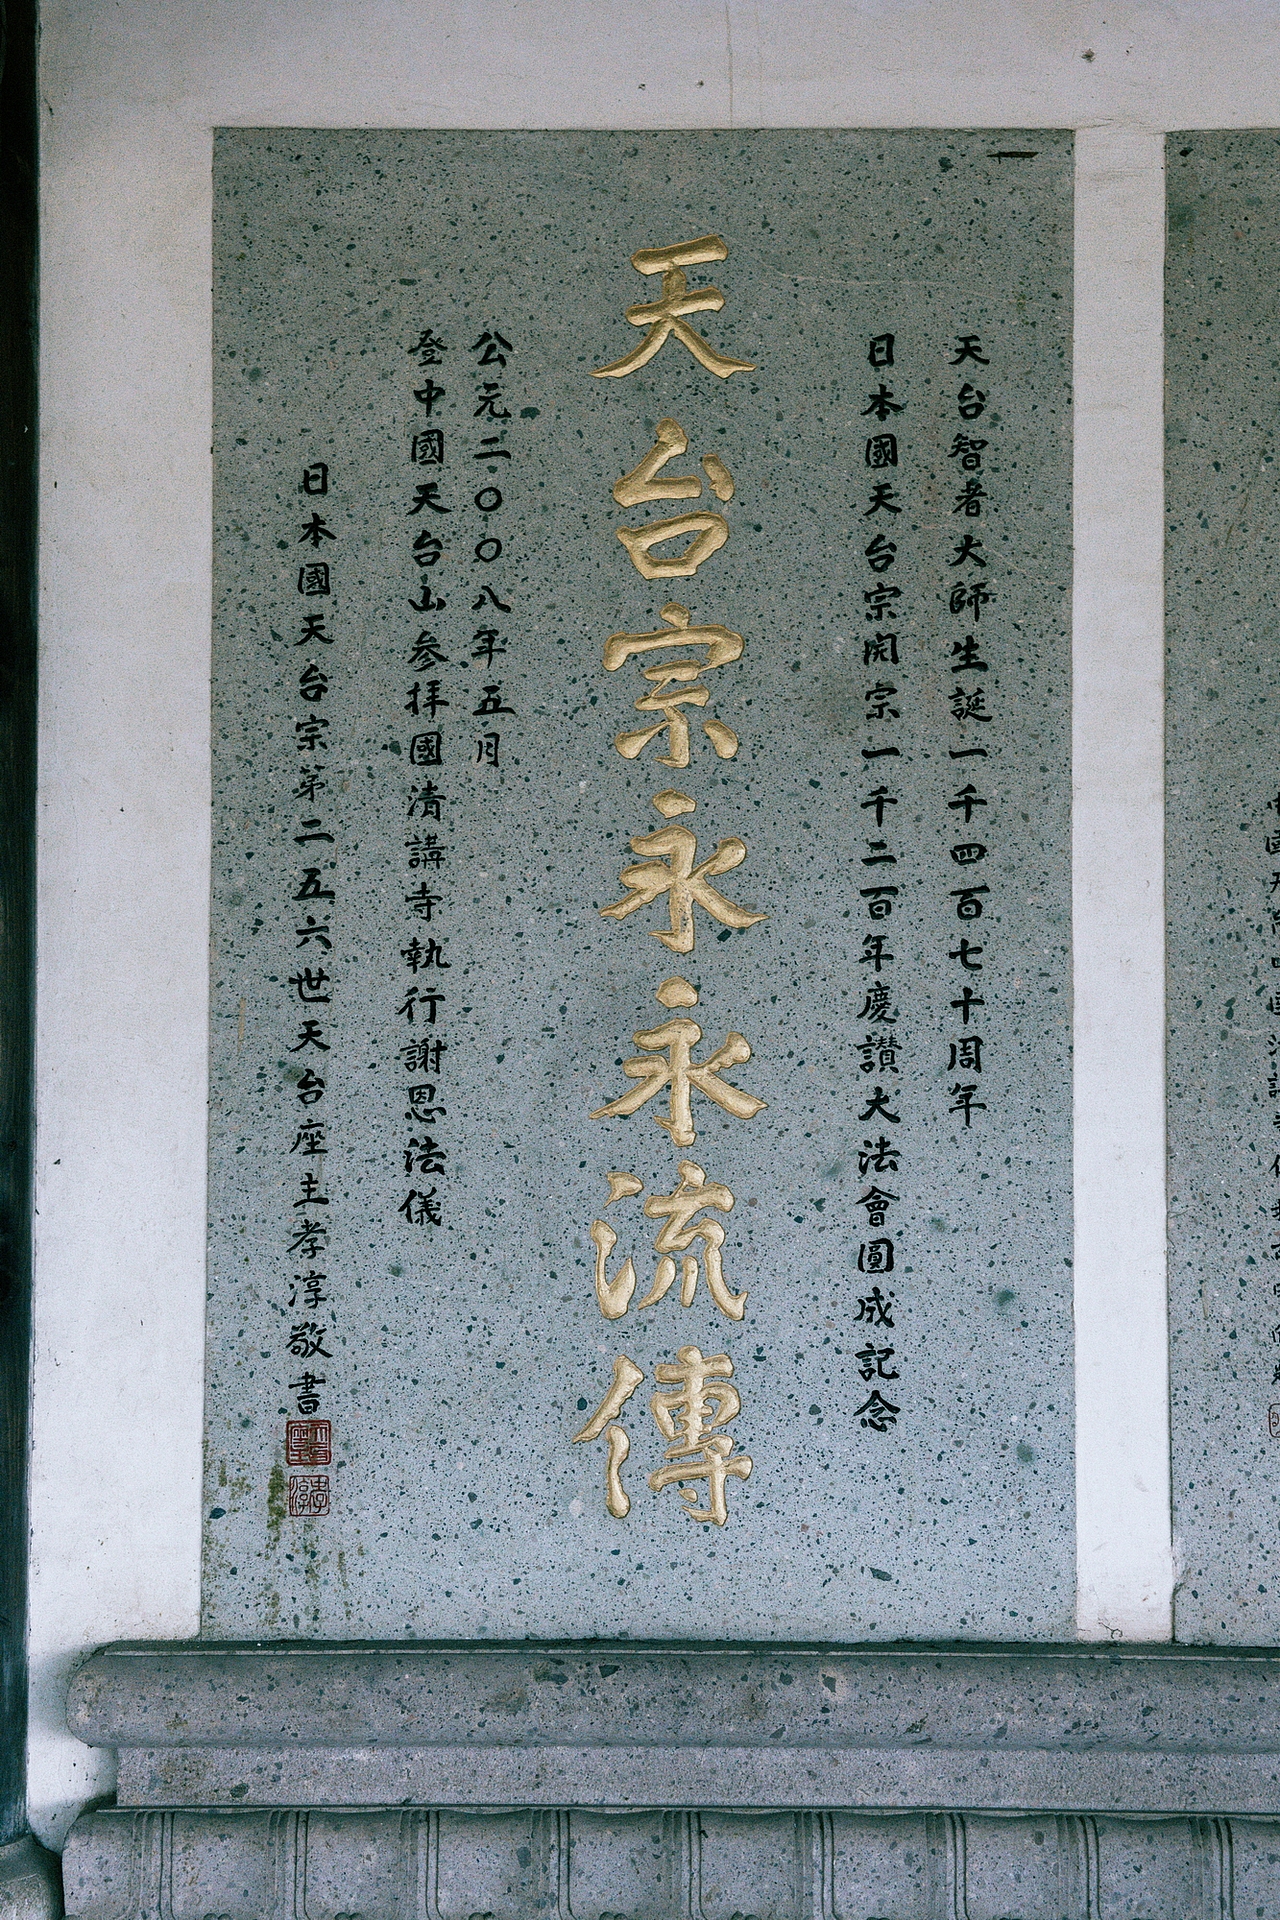 天台智者大師生誕一千四百七十周年
日本國天台宗開宗一千二百年慶讃大法會圓成記念
天台宗永永流傳
公元二〇〇八年五月
登中國天台山參拝國清講寺執行謝恩法儀
日本國天台宗第二五六世天台座主孝淳敬書